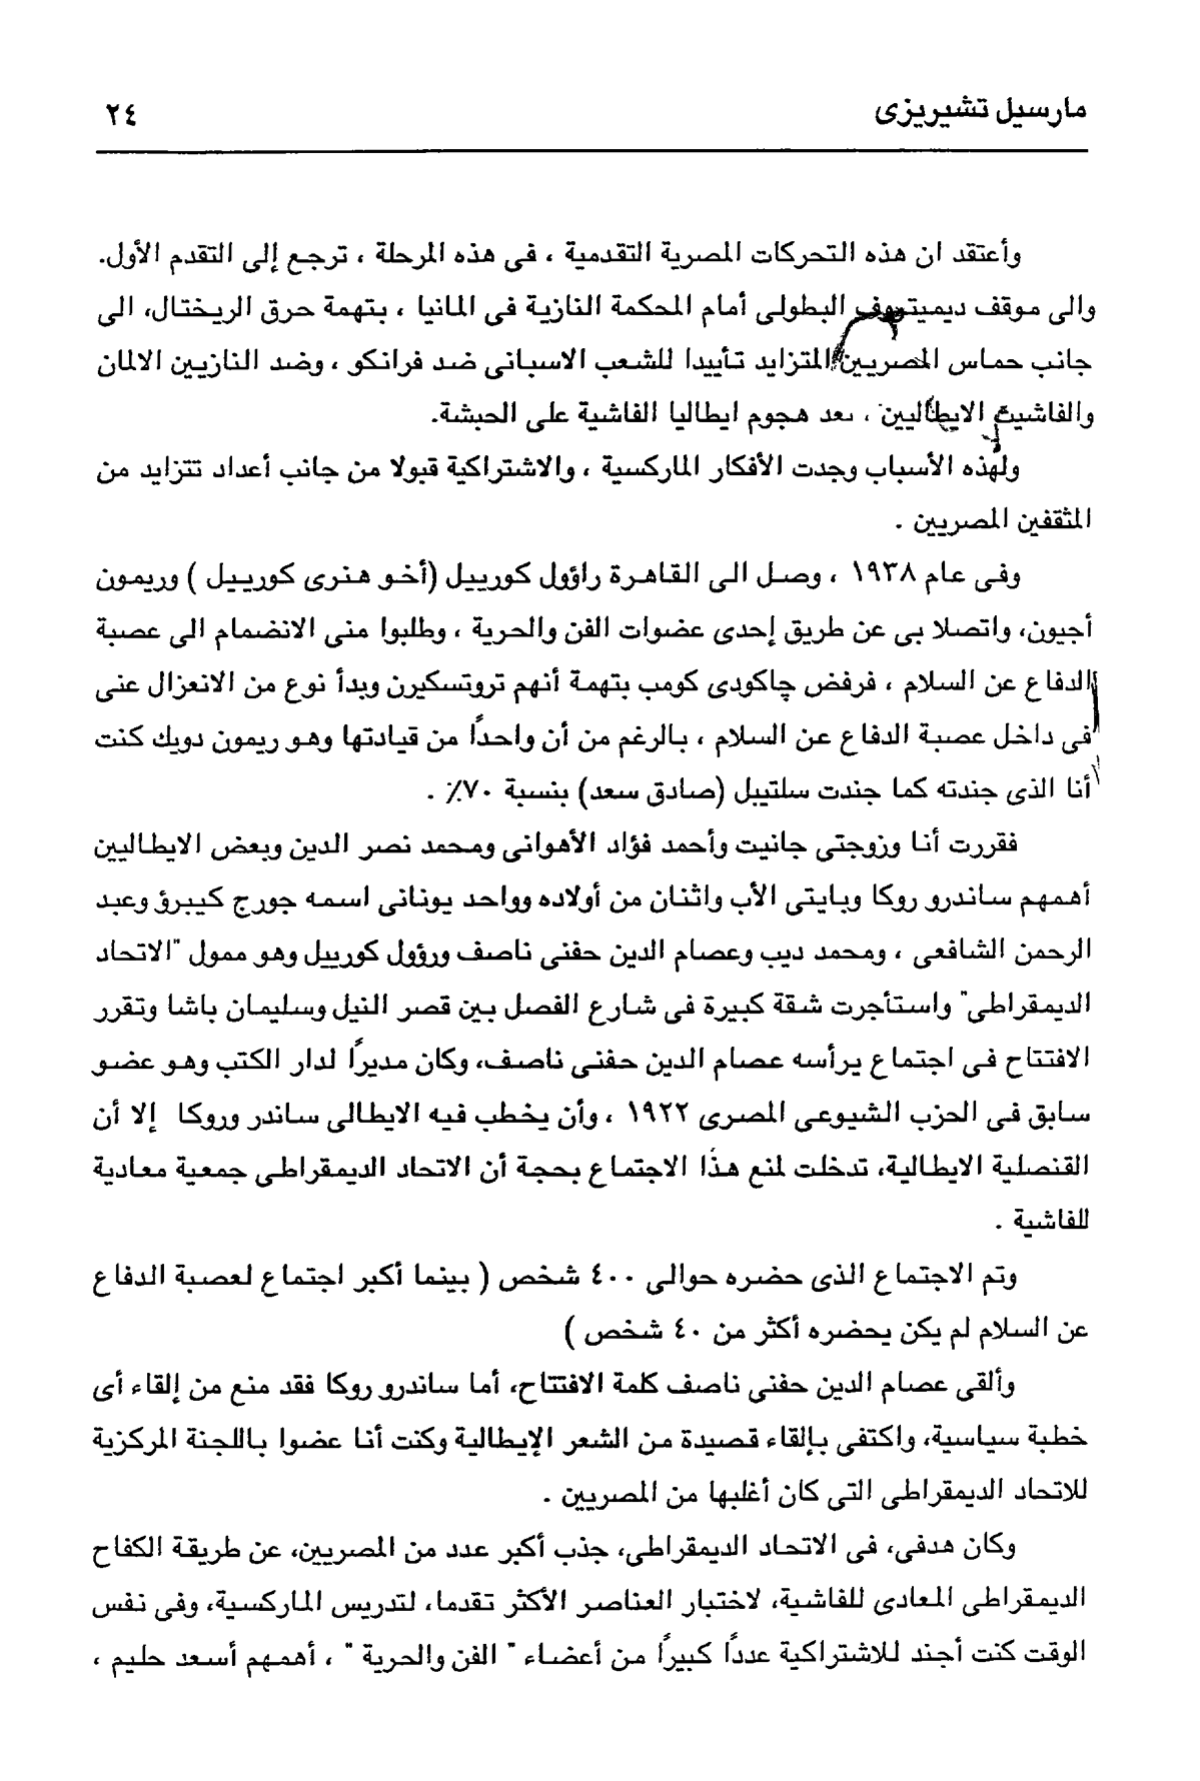 مارسيل تشيريزى
٢٤
وأعتقد ان هذه التحركات المصرية التقدمية ، فى هذه المرحلة ، ترجع إلى التقدم الأول.
والى موقف ديميتروف البطولى أمام المحكمة النازية فى المانيا ، بتهمة حرق الريختال، الى
جانب حماس المصريين المتزايد تأييدا للشعب الاسبانى ضد فرانكو ، وضد النازيين الالمان
والفاشيت الايطاليين ، بعد هجوم ايطاليا الفاشية على الحبشة.
ولهذه الأسباب وجدت الأفكار الماركسية ، والاشتراكية قبولا من جانب أعداد تتزايد من
المثقفين المصريين .
وفى عام ١٩٣٨ ، وصل الى القاهرة راؤول كورييل (أخو هنرى كورييل ) وريمون
أجيون، واتصلا بى عن طريق إحدى عضوات الفن والحرية ، وطلبوا منى الانضمام الى عصبة
الدفاع عن السلام ، فرفض چاكودى كومب بتهمة أنهم تروتسكيرن وبدأ نوع من الانعزال عنى
فى داخل عصبة الدفاع عن السلام ، بالرغم من أن واحداً من قيادتها وهو ريمون دويك كنت
أنا الذى جندته كما جندت سلتييل (صادق سعد) بنسبة ٧٠٪ .
فقررت أنا وزوجتى جانيت وأحمد فؤاد الأهوانى ومحمد نصر الدين وبعض الايطاليين
أهمهم ساندرو روكا وبايتى الأب واثنان من أولاده وواحد يونانى اسمه جورج كيبرؤ وعبد
الرحمن الشافعى ، ومحمد ديب وعصام الدين حفنى ناصف ورؤول كورييل وهو ممول "الاتحاد
الديمقراطى" واستأجرت شقة كبيرة فى شارع الفصل بين قصر النيل وسليمان باشا وتقرر
الافتتاح فى اجتماع يرأسه عصام الدين حفنى ناصف، وكان مديراً لدار الكتب وهو عضو
سابق فى الحزب الشيوعى المصرى ١٩٢٢ ، وأن يخطب فيه الايطالى ساندر وروكا إلا أن
القنصلية الايطالية، تدخلت لمنع هذا الاجتماع بحجة أن الاتحاد الديمقراطى جمعية معادية
للفاشية .
وتم الاجتماع الذى حضره حوالى ٤٠٠ شخص ( بينما أكبر اجتماع لعصبة الدفاع
عن السلام لم يكن يحضره أكثر من ٤٠ شخص )
وألقى عصام الدين حفنى ناصف كلمة الافتتاح، أما ساندرو روكا فقد منع من إلقاء أى
خطبة سياسية، واكتفى بإلقاء قصيدة من الشعر الإيطالية وكنت أنا عضوا باللجنة المركزية
للاتحاد الديمقراطى التى كان أغلبها من المصريين .
وكان هدفى، فى الاتحاد الديمقراطى، جذب أكبر عدد من المصريين، عن طريقة الكفاح
الديمقراطى المعادى للفاشية، لاختبار العناصر الأكثر تقدما، لتدريس الماركسية، وفى نفس
الوقت كنت أجند للاشتراكية عدداً كبيراً من أعضاء " الفن والحرية " ، أهمهم أسعد حليم ،